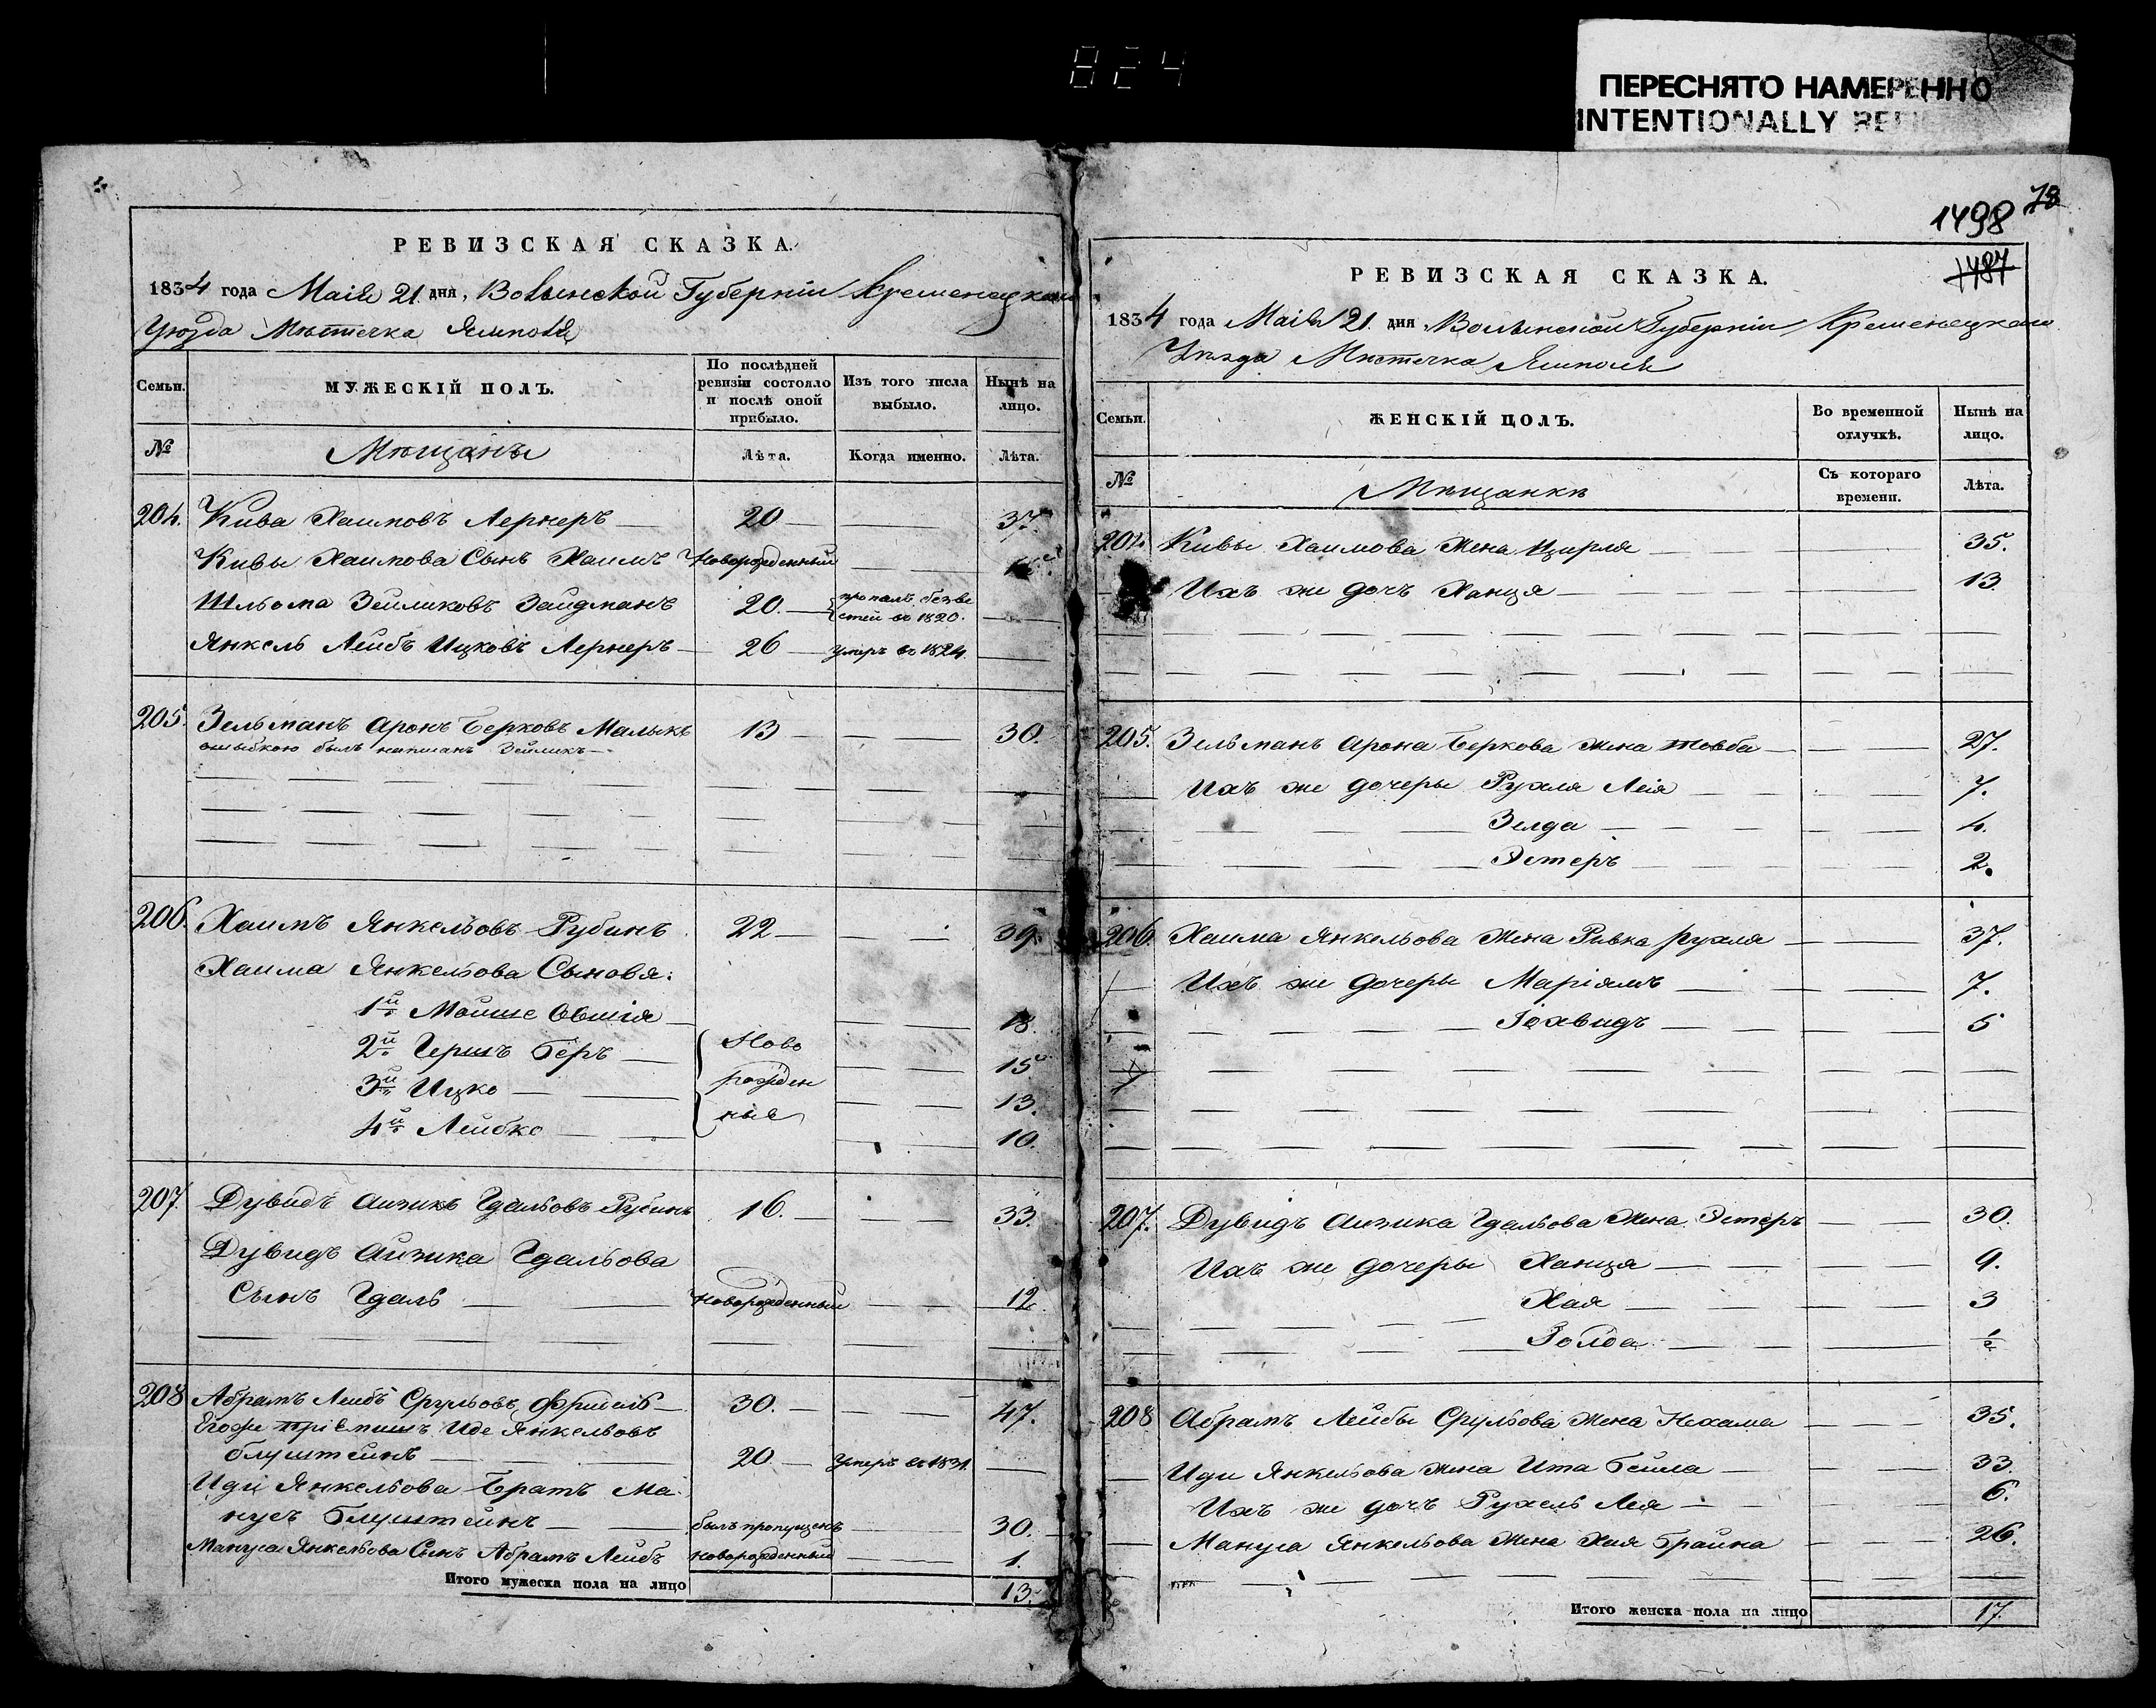 824
ПЕРЕСНЯТО НАМЕРЕННО
INTENTIONALLY
1498 78
1487
РЕВИЗСКАЯ СКАЗКА.
1834 года Маія 21 дня, Волынской Губерніи Кременецкаго
Уѣзда Мѣстечка Ямполя
Семьи. МУЖЕСКІЙ ПОЛЪ. По послѣдней ревизіи состояло и послѣ оной прибыло. Изъ того числа выбыло. Нынѣ на лицо.
№ Мѣщаны Лѣта. Когда именно. Лѣта.
204. Кива Хаимовъ Лернеръ 20 37.
Кивы Хаимова Сынъ Хаимъ Новорожденный
Шльома Зейликовъ Зайдманъ 20. пропалъ безвестей въ 1820.
Янкель Лейбъ Ицковъ Лернеръ 26 умеръ въ 1824.
205. Зельманъ Аронъ Берковъ Малыкъ 13 30.
ошыбкою былъ написанъ Зейликъ
206. Хаимъ Янкельовъ Рубинъ 22 39.
Хаима Янкельова Сыновя:
1й Мойше Овшія 18.
2й Гершъ Беръ Ново 15
3й Ицко рожден 13.
4й Лейбко ные 10.
207. Дувидъ Айзикъ Гдальовъ Рубинъ 16. 33.
Дувидъ Айзика Гдальова
Сынъ Гдаль Новорожденный 12.
208 Абрамъ Лейбъ Срульовъ Фридель 30. 47.
Егоже пріемышъ Иде Янкельовъ
Блуштейнъ 20 умеръ въ 1831.
Иди Янкельова Братъ Ма-
нусъ Блуштейнъ былъ пропущенъ 30.
Мануса Янкельова Сынъ Абрамъ Лейбъ новорожденный 1.
Итого мужеска пола на лицо 13.
РЕВИЗСКАЯ СКАЗКА.
1834 года Маія 21 дня Волынской Губерніи Кременецкаго
Уѣзда Мѣстечка Ямполя
Семьи. ЖЕНСКІЙ ПОЛЪ. Во временной отлучкѣ. Нынѣ на лицо.
№ Мѣщанки Съ котораго времени. Лѣта.
204 Кивы Хаимова Жена Цирля 35.
Ихъ же дочъ Ханця 13.
205. Зельманъ Арона Беркова жена Товба 27.
Ихъ же дочеры Рухля Лея 7.
Зелда 4.
Эстеръ 2.
206. Хаима Янкельова Жена Ривка Рухля 37.
Ихъ же дочеры Маріямъ 7.
Іохвидъ 5
207. Дувидъ Айзика Гдальова Жена Эстеръ 30.
Ихъ же дочеры Ханця 9.
Хая 3
Голда ½
208 Абрамъ Лейбы Срульова жена Нехама 35.
Иди Янкельова жена Ита Бейла 33.
Ихъ же дочъ Рухель Лея 6.
Мануса Янкельова Жена Хая Брайна 26.
Итого женска пола на лицо 17.